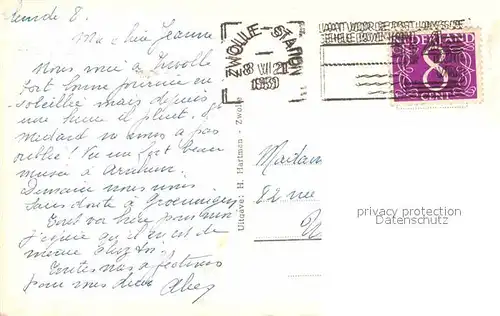 8.
Ma chère Jeanne
Nous voici à Zwolle
fort bonne journée en-
soleillée mais depuis
une heure il pleut. St
Medard ne nous a pas
oublié! Vu un fort beau
musée à Arnhem.
Demain nous irons
sans doute à Groeningen
Tout va bien pour nous
j'espère qu'il en est de
même chez toi.
Toutes nos affections
pour vous deux
ZWOLLE-STATION
8 VI 21
1959
NEDERLAND
8
CENT
Uitgave: H. Hartman - Zwolle
Madam
22 rue
privacy protection
Datenschutz